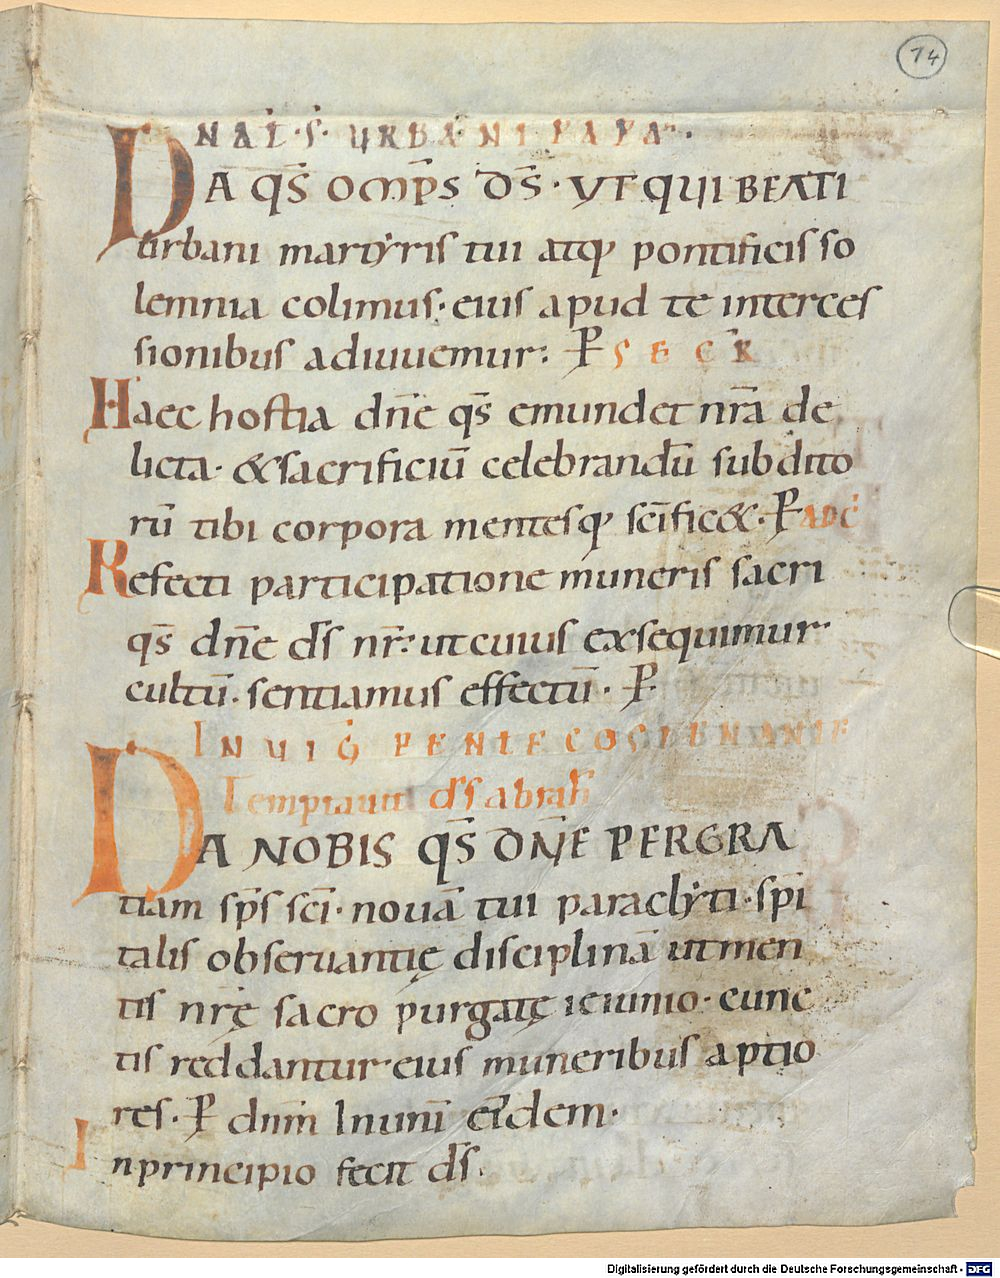 14
NAT̄·S· URBANI PAPAE·
DA qs̄ omp̄s d̄s· UT QUI BEATI
urbani martẏris tui atq; pontificis so
lemnia colimus· eius apud te interces
sionibus adiuuemur: P SECR̄
Haec hostia dn̄e qs̄ emundet nr̄a de
licta· &sacrificiū celebrandū subdito
rū tibi corpora mentesq; scīfic&· P AD C̄
Refecti participatione muneris sacri
qs̄ dn̄e ds̄ nr̄: ut cuius exsequimur
cultū· sentiamus effectū· P
IN UIḠ PENTECOSTEN ANTE
Temptauit ds̄ abrah̄
DA NOBIS qs̄ DN̄E PER GRA
tiam sp̄s scī· nouā tui paraclẏti· sp̄i
talis obseruantię disciplinā ut men
tis nr̄ę sacro purgatę ieiunio· cunc
tis reddantur eius muneribus aptio
res· P dnm̄ In unī eiꝰdem·
In principio fecit ds̄·
Digitalisierung gefördert durch die Deutsche Forschungsgemeinschaft - DFG